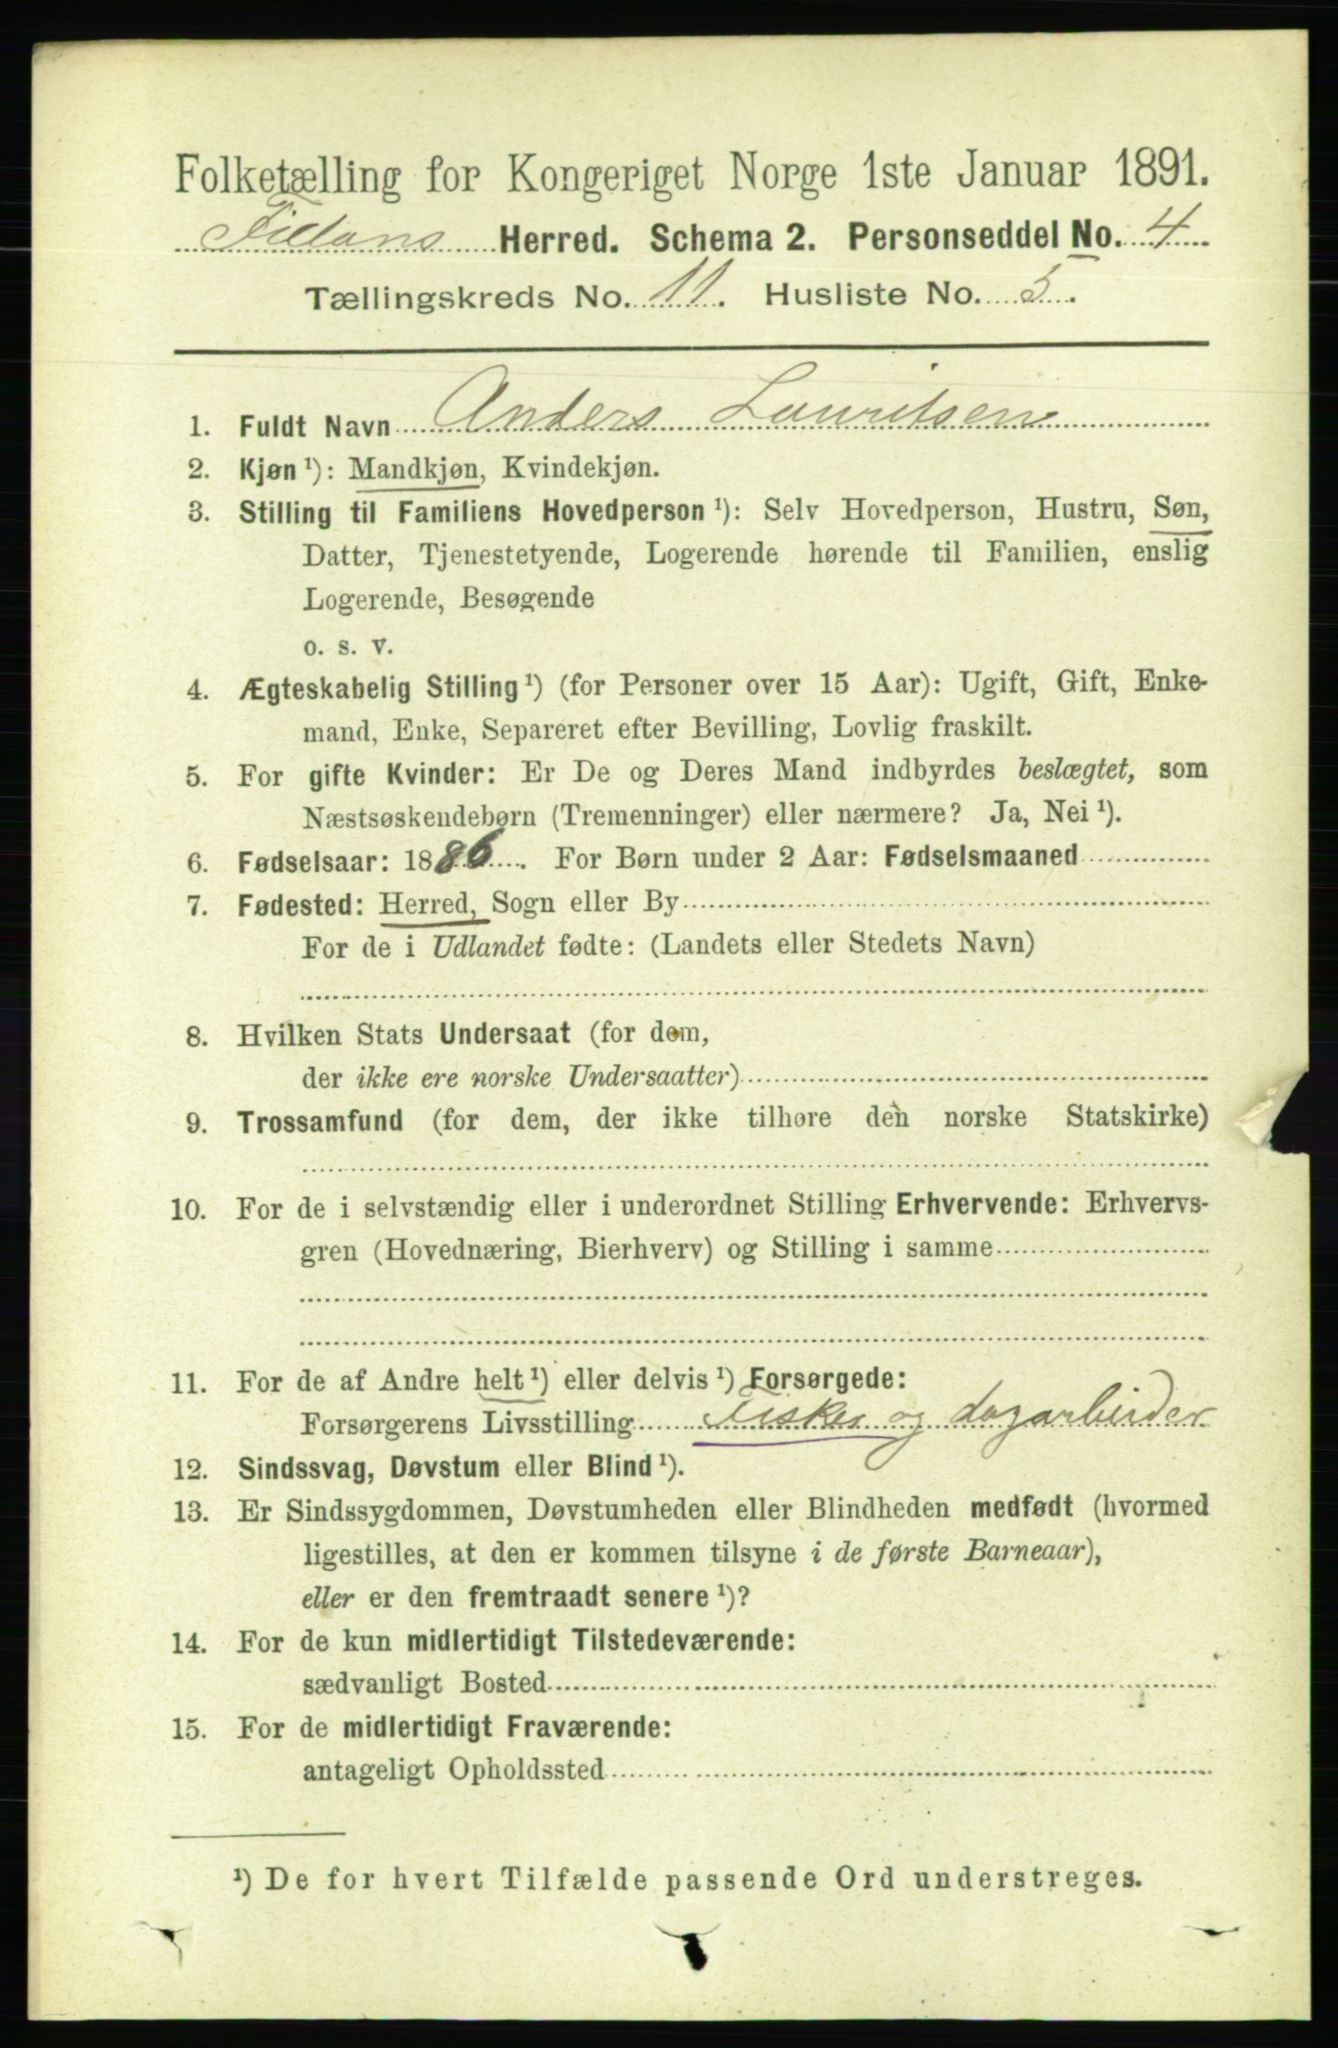 Folketælling for Kongeriget Norge 1ste Januar 1891.
Fillans Herred. Schema 2. Personseddel No. 4
Tællingskreds No. 11. Husliste No. 5.
1. Fuldt Navn Anders Lauritsen
2. Kjøn ¹): Mandkjøn, Kvindekjøn.
3. Stilling til Familiens Hovedperson ¹): Selv Hovedperson, Hustru, Søn,
Datter, Tjenestetyende, Logerende hørende til Familien, enslig
Logerende, Besøgende
o. s. v.
4. Ægteskabelig Stilling ¹) (for Personer over 15 Aar): Ugift, Gift, Enke-
mand, Enke, Separeret efter Bevilling, Lovlig fraskilt.
5. For gifte Kvinder: Er De og Deres Mand indbyrdes beslægtet, som
Næstsøskendebørn (Tremenninger) eller nærmere? Ja, Nei ¹).
6. Fødselsaar: 1886. For Børn under 2 Aar: Fødselsmaaned
7. Fødested: Herred, Sogn eller By
For de i Udlandet fødte: (Landets eller Stedets Navn)
8. Hvilken Stats Undersaat (for dem,
der ikke ere norske Undersaatter)
9. Trossamfund (for dem, der ikke tilhøre den norske Statskirke)
10. For de i selvstændig eller i underordnet Stilling Erhvervende: Erhvervs-
gren (Hovednæring, Bierhverv) og Stilling i samme
11. For de af Andre helt ¹) eller delvis ¹) Forsørgede:
Forsørgerens Livsstilling Fisker og dagarbeider
12. Sindssvag, Døvstum eller Blind ¹).
13. Er Sindssygdommen, Døvstumheden eller Blindheden medfødt (hvormed
ligestilles, at den er kommen tilsyne i de første Barneaar),
eller er den fremtraadt senere ¹)?
14. For de kun midlertidigt Tilstedeværende:
sædvanligt Bosted
15. For de midlertidigt Fraværende:
antageligt Opholdssted
¹) De for hvert Tilfælde passende Ord understreges.